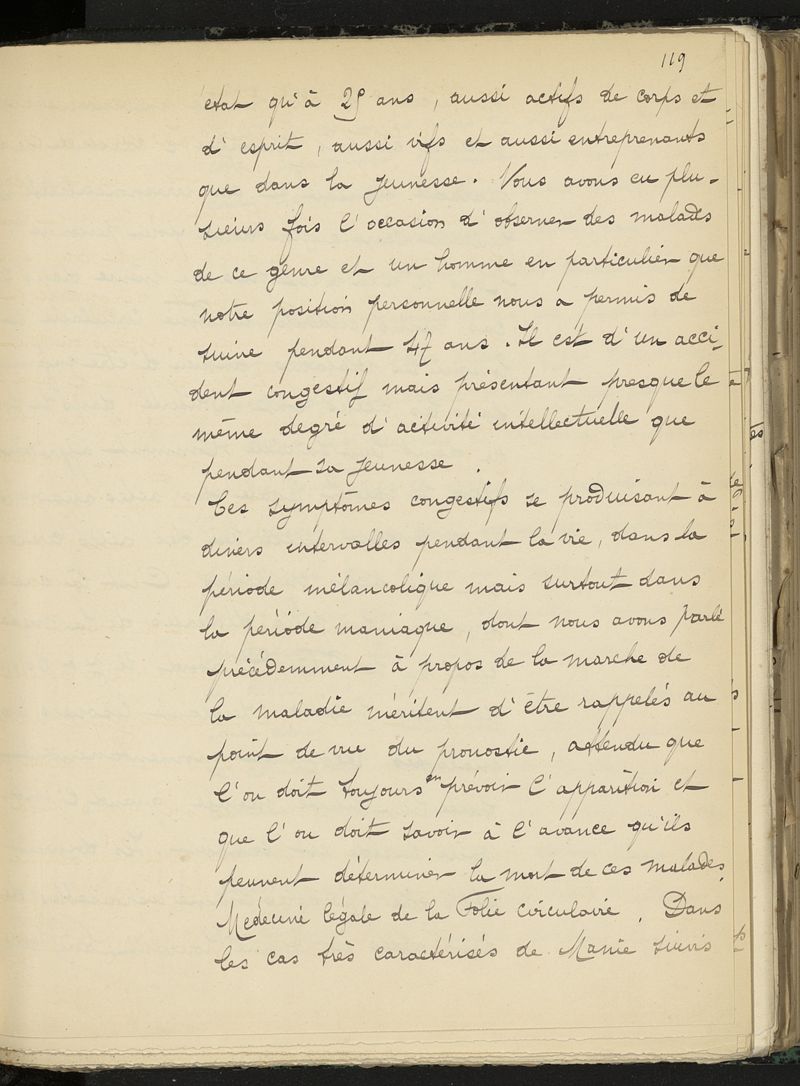 119
état qu'à 25 ans, aussi actifs de corps et
d'esprit, aussi vifs et aussi entreprenants
que dans la jeunesse. Nous avons eu plu-
sieurs fois l'occasion d'observer des malades
de ce genre et un homme en particulier que
notre position personnelle nous a permis de
suivre pendant 47 ans. Il est d'un acci-
dent congestif mais présentant presque le
même degré d'activité intellectuelle que
pendant sa jeunesse.
Ces symptômes congestifs se produisant à
divers intervalles pendant la vie, dans la
période mélancolique mais surtout dans
la période maniaque, dont nous avons parlé
précédemment à propos de la marche de
la maladie méritent d'être rappelés au
point de vue du pronostic, attendu que
l'on doit toujours en prévoir l'apparition et
que l'on doit savoir à l'avance qu'ils
peuvent déterminer la mort de ces malades.
Médecine légale de la Folie circulaire. Dans
les cas très caractérisés de Manie suivis